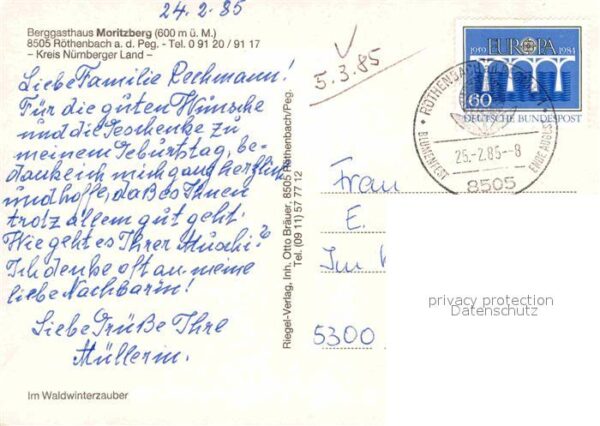 24.2.85
Berggasthaus Moritzberg (600 m ü. M.)
8505 Röthenbach a. d. Peg. - Tel. 0 91 20 / 91 17
– Kreis Nürnberger Land –
Liebe Familie Rechmann!
Für die guten Wünsche
und die Geschenke zu
meinem Geburtstag, be-
danke ich mich ganz herzlich
und hoffe, daß es Ihnen
trotz allem gut geht!
Wie geht es Ihrer Muschi?
Ich denke oft an meine
liebe Nachbarin!
Liebe Grüße Ihre
Müllerin.
Im Waldwinterzauber
Riegel-Verlag, Inh. Otto Bräuer, 8505 Röthenbach/Peg.
Tel. (09 11) 57 77 12
5.3.85
1959 EUROPA 1984
60
DEUTSCHE BUNDESPOST
RÖTHENBACH
BLUMENFEST
ENDE AUGUST
25.-2.85-8
8505
Frau
E.
Im
5300
privacy protection
Datenschutz